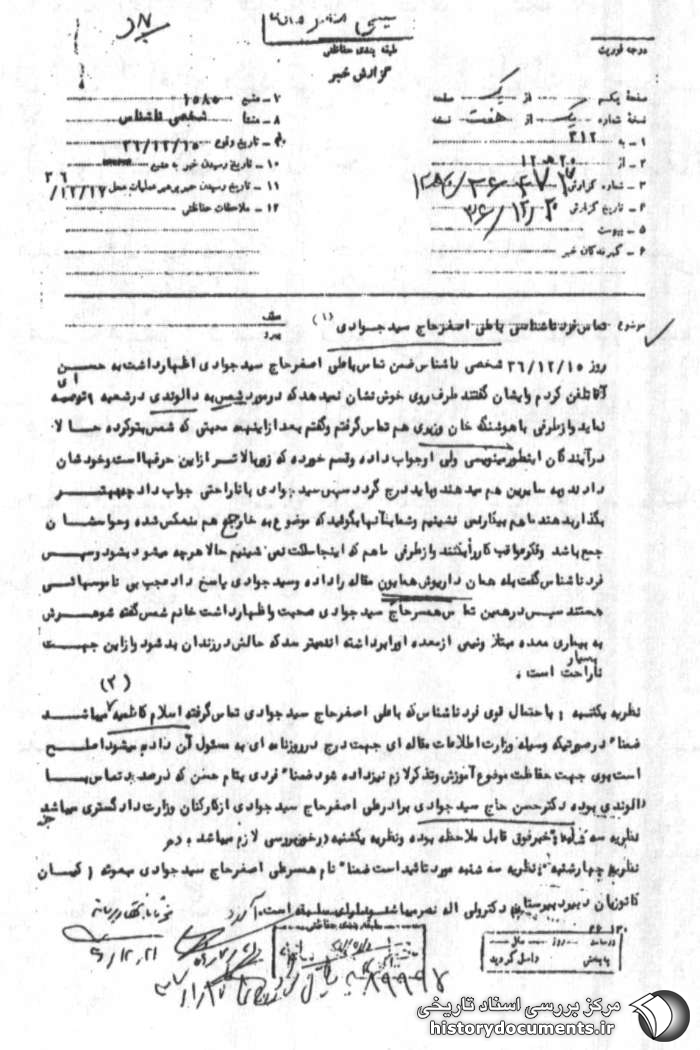 طبقه بندی حفاظتی
گزارش خبر
درجه فوریت
صفحه یکم از یک صفحه
نسخه شماره یک از هفت نسخه
۱ - به ۳۱۲
۲ - از ۲۰ هـ ۱۲
۳ - شماره گزارش
۴ - تاریخ گزارش
۵ - پیوست
۶ - گیرندگان خبر
۷ - منبع ۱۵۸۵
۸ - منشأ شخصی ناشناس
۹ - تاریخ وقوع ۳۶/۱۲/۱۵
۱۰ - تاریخ رسیدن خبر به منبع
۱۱ - تاریخ رسیدن خبر به رهبر عملیات محل ۳۶/۱۲/۱۷
۱۲ - ملاحظات حفاظتی
موضوع تماس فرد ناشناسی با علی اصغر حاج سید جوادی (۱)
عطف
پیرو
روز ۳۶/۱۲/۱۵ شخصی ناشناس ضمن تماس با علی اصغر حاج سید جوادی اظهار داشت به حسن
آقا تلفن کردم و ایشان گفتند طرف روی خوش نشان نمیدهد که در مورد شمس به دالوندی در شعبه ۹ توصیه ای
نماید و از طرفی با هوشنگ خان وزیری هم تماس گرفتم و گفتم بعد از اینهمه محبتی که شمس بتو کرده حالا
در آیندگان اینطور مینویسی ولی او جواب داده و قسم خورده که زور بالا تر از این حرفها است و خودشان
داده‌اند به سایرین هم میدهند و باید درج گردد سپس سید جوادی با ناراحتی جواب داد چه بهتر
بگذار بدهند ما هم بیکار نمی نشینیم و شما به آنها بگوئید که موضوع به خارج هم منعکس شده و حواسشان
جمع باشد و فکر عواقب کار را بکنند و از طرفی ما هم که اینجا ساکت نمی نشینیم حالا هر چه میشود بشود و سپس
فرد ناشناس گفت بله همان داریوش همایون مقاله را داده و سید جوادی پاسخ داد عجب بی ناموسهائی
هستند سپس در همین تماس همسر حاج سید جوادی صحبت و اظهار داشت خانم شمس گفته شوهرش
به بیماری معده مبتلا و نیمی از معده او را برداشته اند میترسد که حالش در زندان بد شود و از این جهت
بسیار ناراحت است .
(۲)
نظریه یکشنبه : با احتمال قوی فرد ناشناس که با علی اصغر حاج سید جوادی تماس گرفته اسلام کاظمیه میباشد
ضمناً در صورتیکه وسیله وزارت اطلاعات مقاله ای جهت درج در روزنامه ای به مسئول آن دادم میشود اصلح
است بوی جهت حفاظت موضوع آموزش و تذکر لازم نیز داده شود ضمناً فردی بنام حسن که در صدد تماس با
دالوندی بوده دکتر حسن حاج سید جوادی برادر علی اصغر حاج سید جوادی از کارکنان وزارت دادگستری میباشد
نظریه سه شنبه : خبر فوق قابل ملاحظه بوده و نظریه یکشنبه در خور بررسی لازم میباشد .
نظریه چهارشنبه : نظریه سه شنبه مورد تائید است ضمناً نام همسر علی اصغر حاج سید جوادی کیان
کاتوزیان دبیر دبیرستان دکتر ولی اله نصر میباشد
طبقه بندی حفاظتی
روز ماه سال
بایگانی داخل گردید
مرکز بررسی اسناد تاریخی
historydocuments.ir